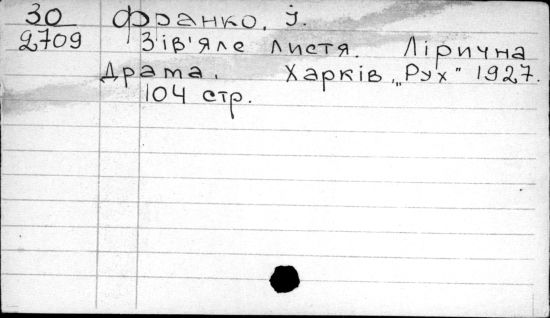 30 Франко, І.
2709 Зів'яле листя. Лірична
драма. Харків, „Рух" 1927.
104 стр.